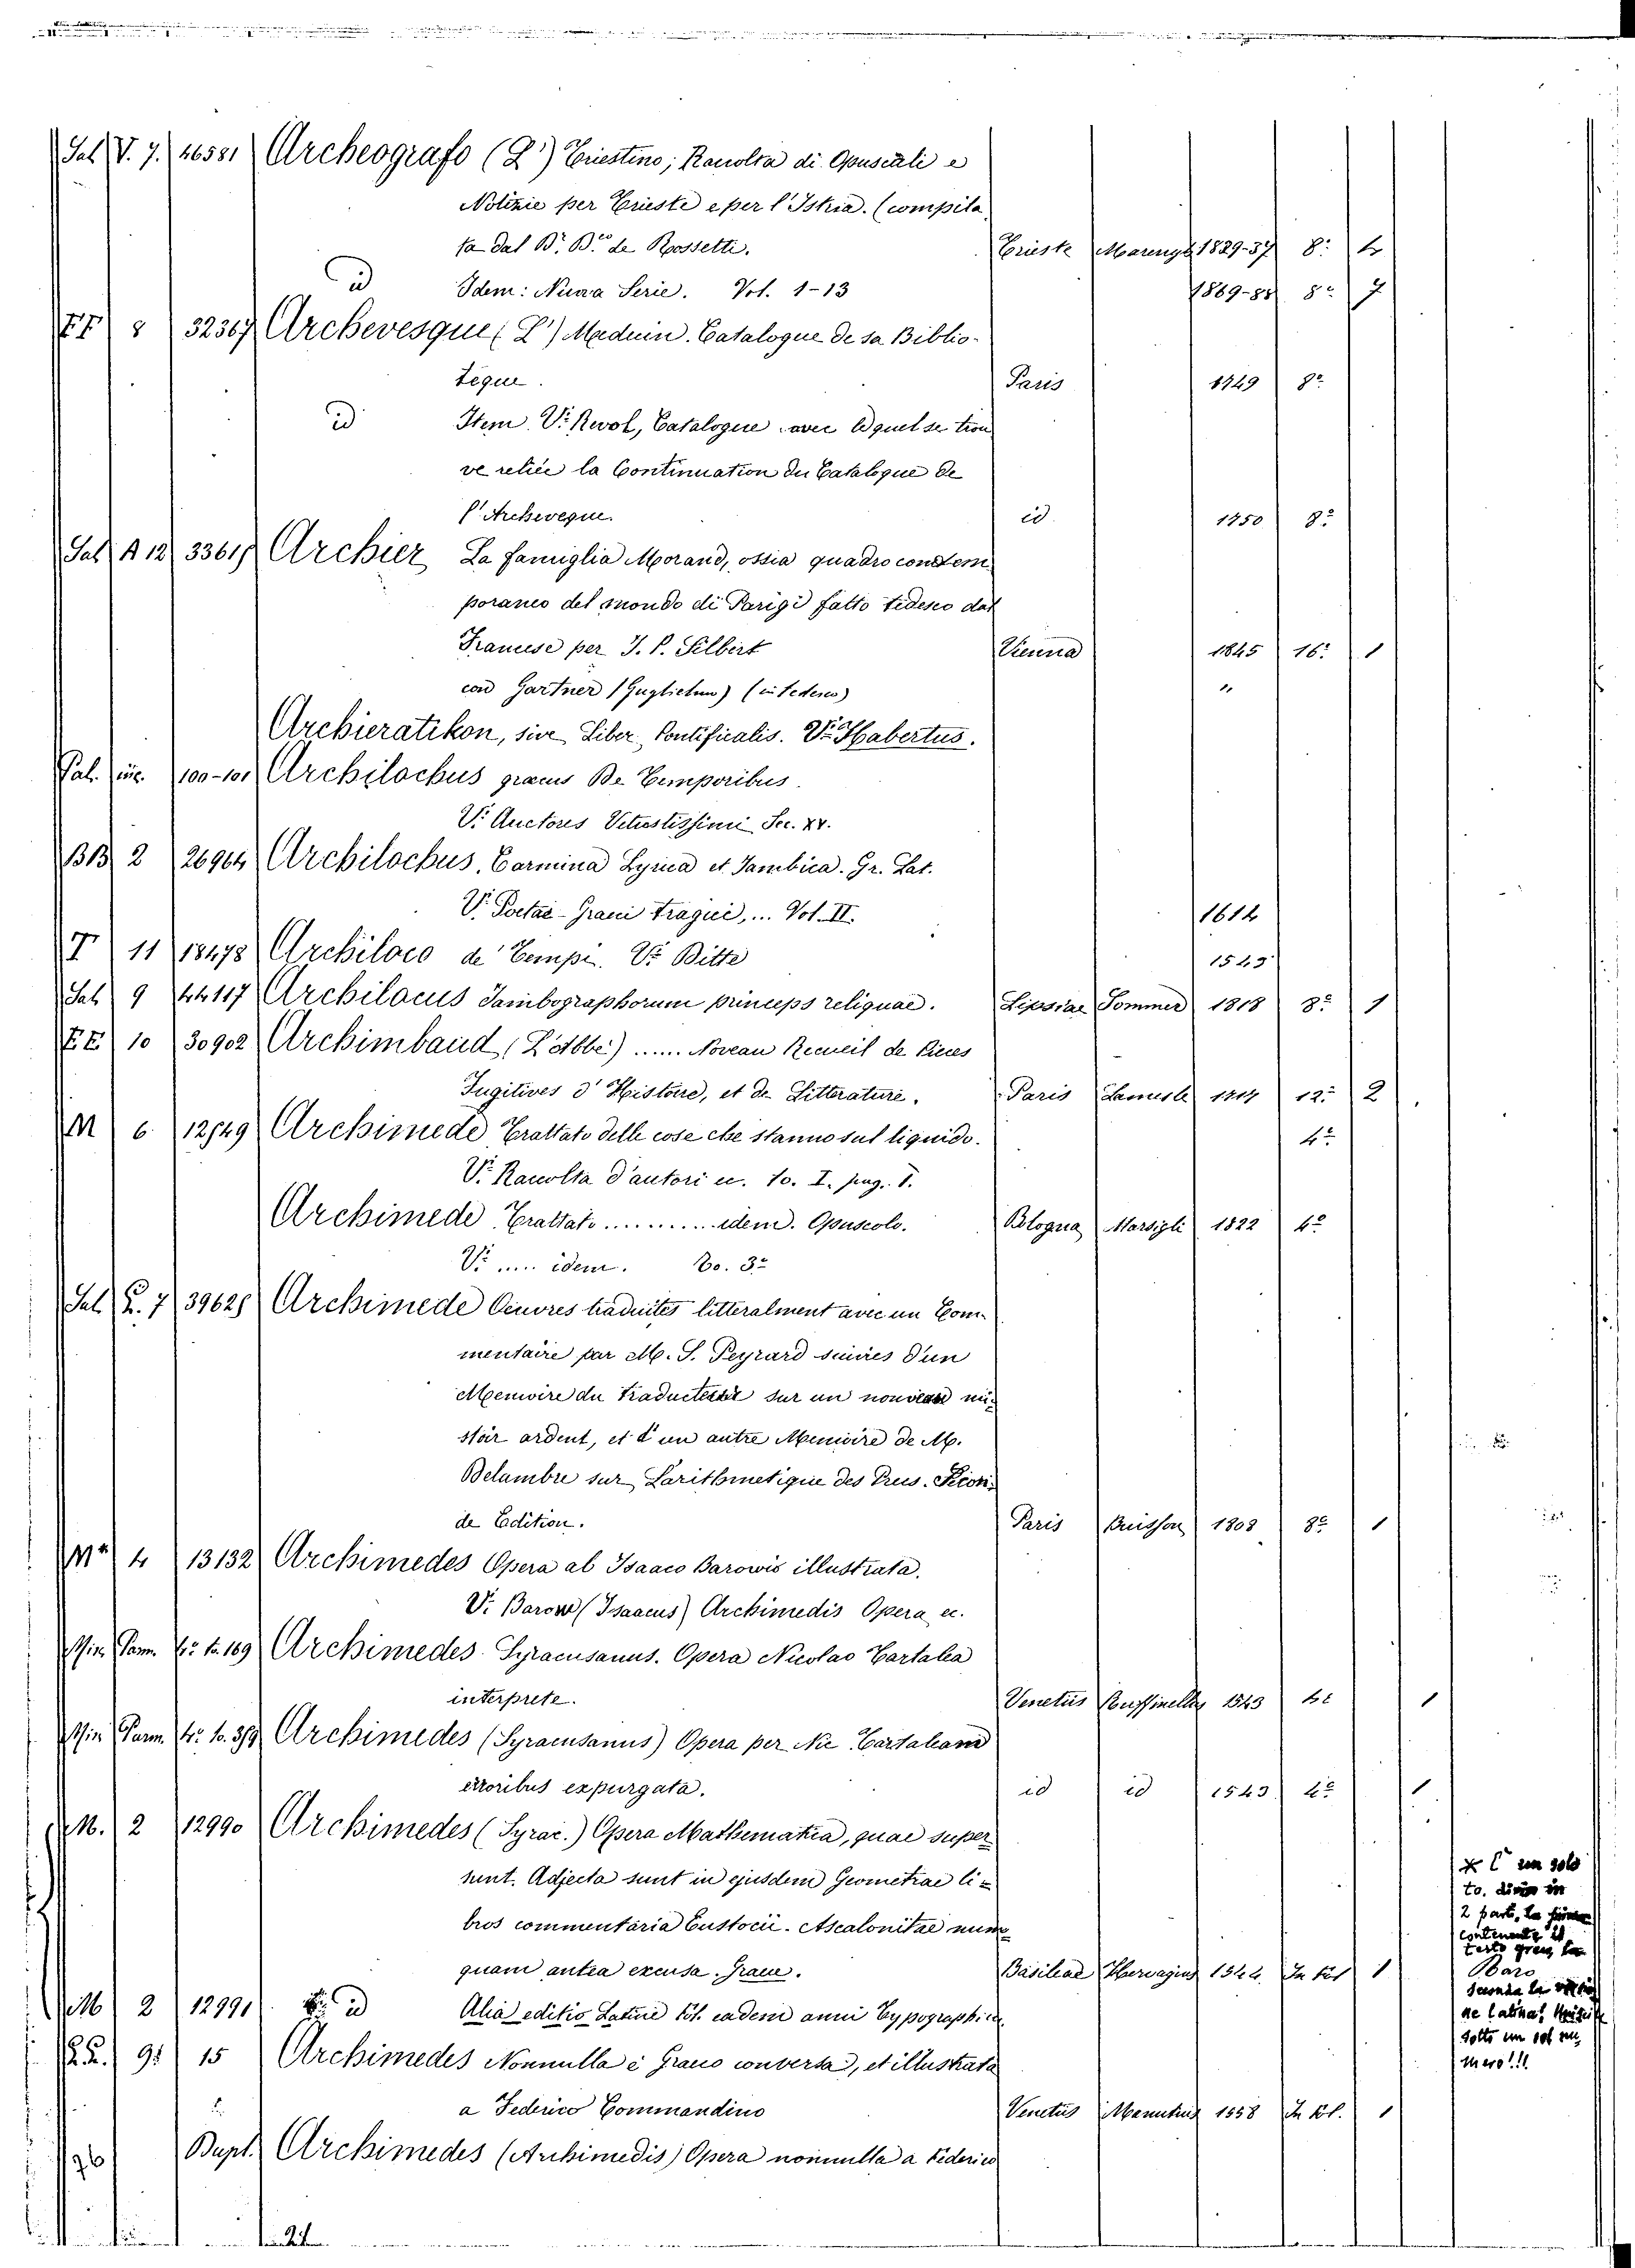 Sal V. 7. 46581 Archeografo (L') Triestino; Raccolta di Opuscoli e
Notizie per Trieste e per l'Istria. (compila
ta dal Dr. Dco de Rossetti. Trieste Marenigh 1829-37 8º 4
id Idem: Nuova Serie. Vol. 1-13 1869-88 8º 7
FF 8 32367 Archevesque (L') Medecin. Catalogue de sa Biblio-
teque. Paris 1749 8º
id Item. Vi Revol, Catalogue avec lequel se trou
ve reliée la Continuation du Catalogue de
l'Archeveque. id 1750 8º
Sal A 12 33617 Archier La famiglia Morand, ossia quadro contem
poraneo del mondo di Parigi fatto tedesco dal
Francese per J. P. Silbert Vienna 1845 16º 1
con Gartner (Guglielmo) (in tedesco) "
Archieratikon, sive Liber Pontificalis. Vi Habertus.
Pal. inc. 100-101 Archilochus graecus De Temporibus.
Vi Auctores Vetustissimi Sec. XV.
BB 2 26964 Archilochus, Carmina Lyrica et Jambica. Gr. Lat.
Vi Poetae Graeci tragici, ... Vol. II. 1614
T 11 18478 Archiloco de' Tempi. Vi Ditte 1543
Sal 9 44117 Archilocus Jambographorum princeps reliquae. Lipsiae Sommer 1818 8º 1
EE 10 30902 Archimbaud (L'Abbé) ...... Noveau Recueil de Pieces
Fugitives d'Histoire, et de Litterature. Paris Lamesle 1717 12º 2
M 6 12549 Archimede Trattato delle cose che stanno sul liquido. 4º
Vi Raccolta d'autori ec. To. I. pag. 1.
Archimede Trattato .......... idem. Opuscolo. Bologna Marsigli 1822 4º
Vi ..... idem. To. 3º
Sal L. 7 39628 Archimede Oeuvres traduites litteralment avec un Com-
mentaire par M. S. Peyrard suivies d'un
Memoire du traducteur sur un nouveau mi-
stoir ardent, et d'un autre Memoire de M.
Delambre sur Larithmetique des Grecs. Secon-
de Edition. Paris Buisson 1808 8º 1
Mª 4 13132 Archimedes Opera ab Isaaco Barowio illustrata.
Vi Barow (Isaacus) Archimedis Opera ec.
Min Parm. 4º 169 Archimedes Syracusanus. Opera Nicolao Tartalea
interprete. Venetiis Ruffinellus 1543 4º 1
Min Parm. 4º Archimedes (Syracusanus) Opera per Nic Tartaleam
erroribus expurgata. id id 1543 4º 1
M. 2 12990 Archimedes (Syrac.) Opera Mathematica, quae super
sunt. Adjecta sunt in ejusdem Geometrae li-
bros commentaria Eustocii Ascalonitae num
quam antea excusa. Graece. Basileae Hervagius 1544. In fol 1
M 2 12991 id Alia editio Latine fol. eadem anni Typographica
9 15 Archimedes Nonnulla e Graeco conversa, et illustrata
a Federico Commandino Venetiis Manutius 1558 In fol. 1
Dupl. Archimedes (Archimedis) Opera nonnulla a Federico
un solo
to. diviso in
2 parti, la prima
contenente il
testo greco la
seconda la versio
ne latina!
sotto un sol nu
mero!!!